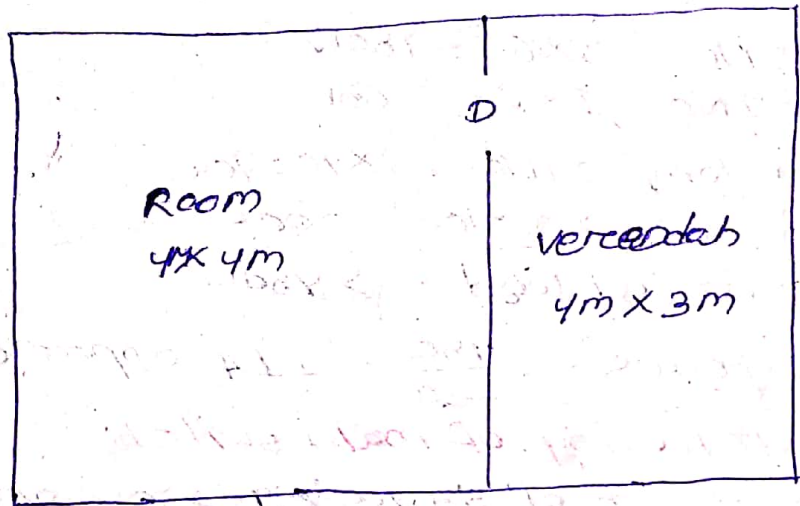 D
Room
4m× 4m
verandah
4m × 3m